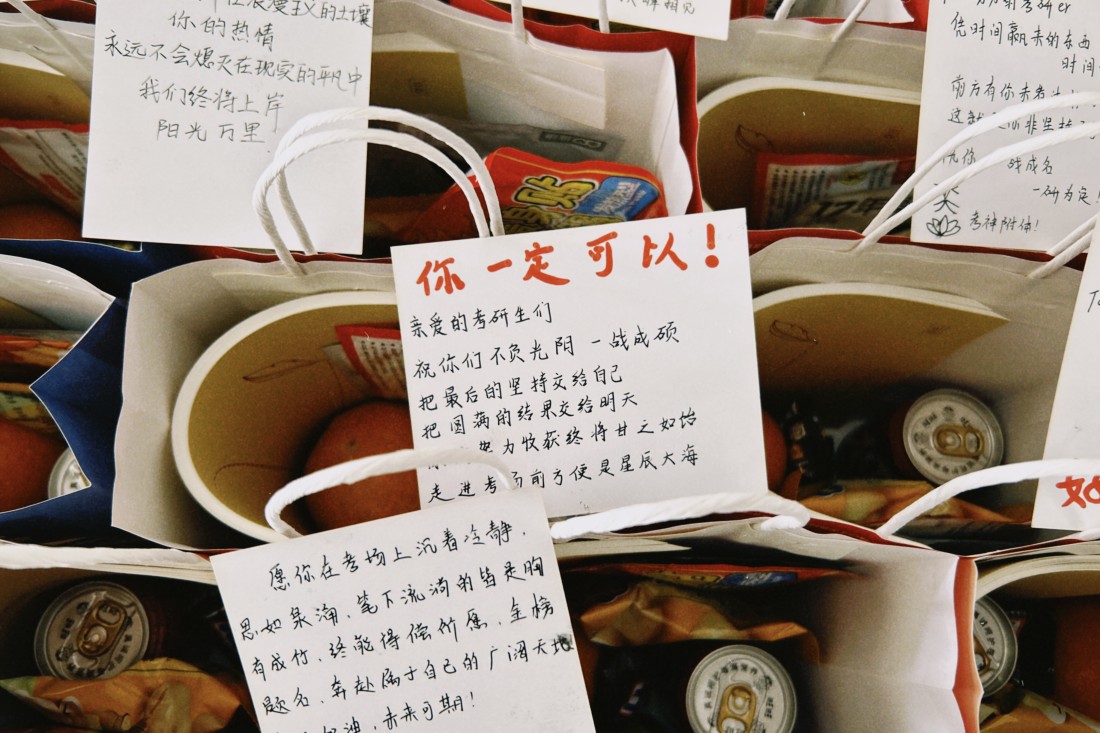 浪漫主义的土壤
你的热情
永远不会熄灭在现实的平凡中
我们终将上岸
阳光万里
凭时间赢来的东西
时间
前方有你
战成名
一研为定
考神附体!
你一定可以!
亲爱的考研生们
祝你们不负光阴 一战成硕
把最后的坚持交给自己
把圆满的结果交给明天
努力收获终将甘之如饴
走进考场前方便是星辰大海
愿你在考场上沉着冷静,
思如泉涌、笔下流淌的皆是胸
有成竹、终能得偿所愿、金榜
题名、奔赴属于自己的广阔天地
加油,未来可期!